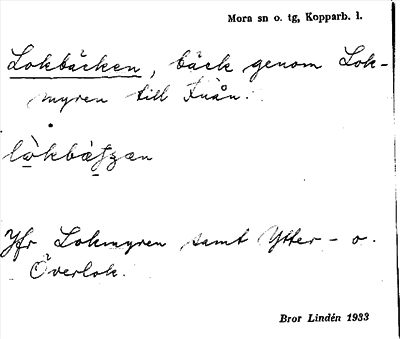 Mora sn o. tg, Kopparb. l.
Lokbäcken, bäck genom Lok-
myren till Fuån.
Jfr Lokmyren samt Ytter- o.
Överlok.
Bror Lindén 1933